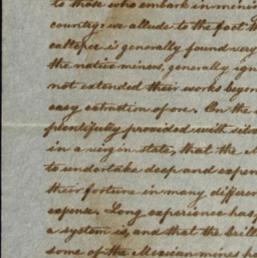 to those who embark in mini
country: we allude to the fact th
caltepec is generally found very
the native miners, generally ign
not extended their works beyon
easy extraction of ore. On the
plentifully provided with silve
in a virgin state, that the M
to undertake deep and expen
their fortune in many differen
expense. Long experience has
a system is, and that the brill
some of the Mexican mines ha